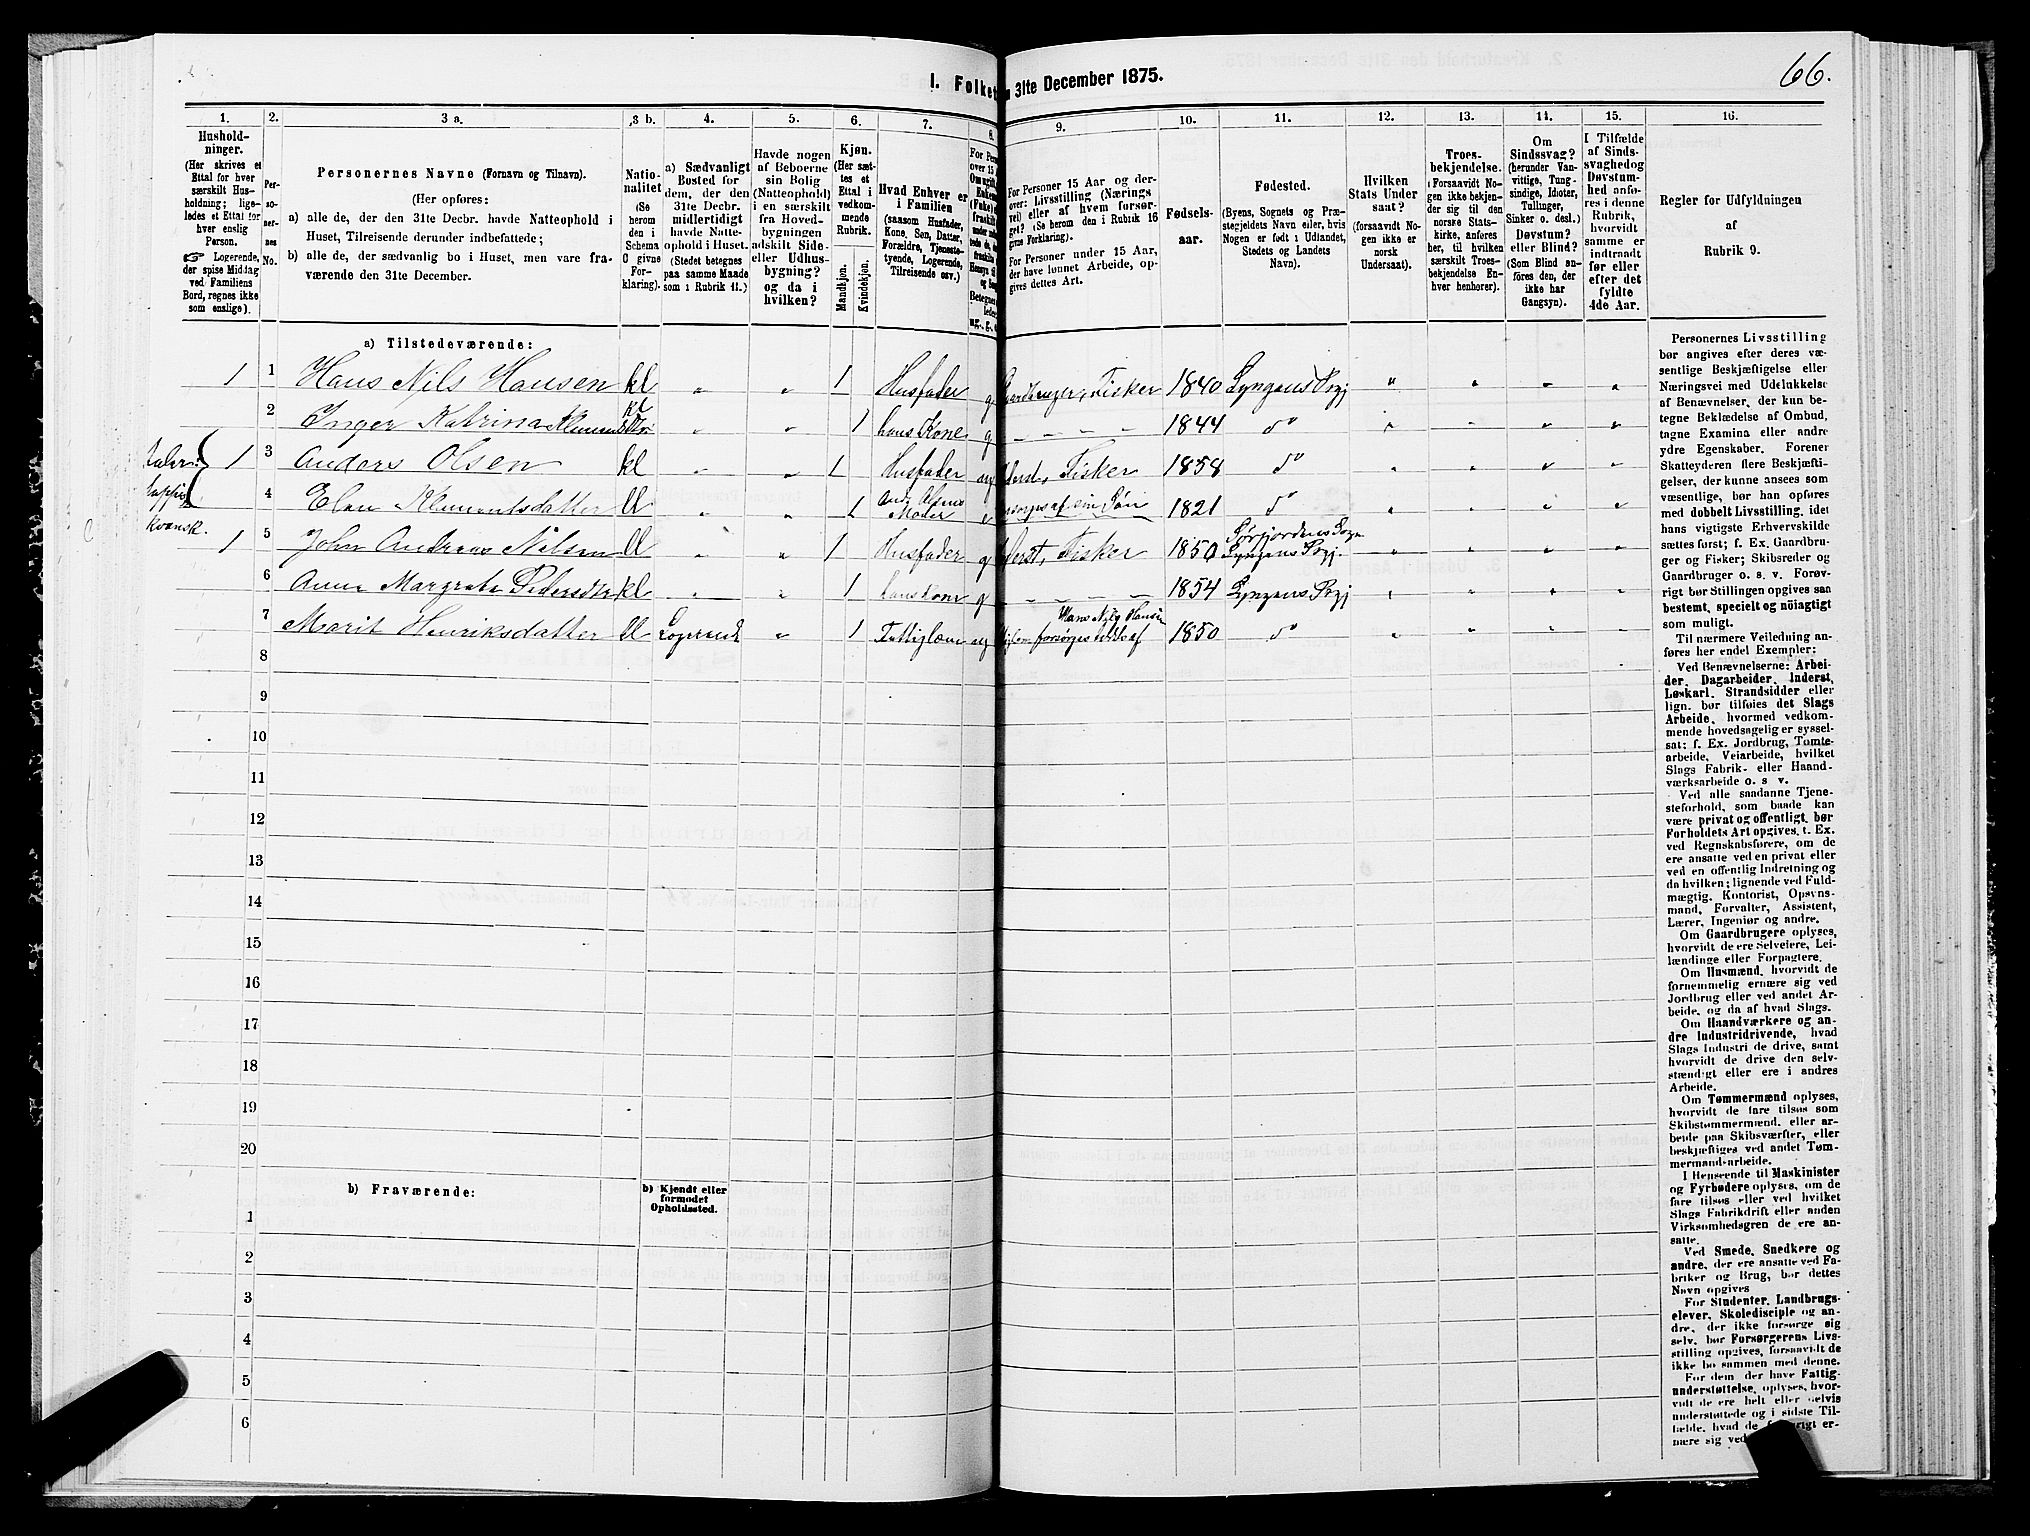 66.
1. Folket
n 31te December 1875.
1. 2. 3 a. 3 b. 4. 5. 6. 7. 8. 9. 10. 11. 12. 13. 14. 15. 16.
Hushold-
ninger.
(Her skrives et
Ettal for hver
særskilt Hus-
holdning; lige-
ledes et Ettal for
hver enslig
Person.
☞ Logerende,
der spise Middag
ved Familiens
Bord, regnes ikke
som enslige).
Per-
so-
ner-
nes
No.
Personernes Navne (Fornavn og Tilnavn).
(Her opføres:
a) alle de, der den 31te Decbr. havde Natteophold i
Huset, Tilreisende derunder indbefattede;
b) alle de, der sædvanlig bo i Huset, men vare fra-
værende den 31te December.
Natio-
nalitet
(Se
herom
den i
Schema
O givne
For-
klaring).
a) Sædvanligt
Bosted for
dem, der den
31te Decbr.
midlertidigt
havde Natte-
ophold i Huset.
(Stedet betegnes
paa samme Maade
som i Rubrik 11.)
Havde nogen
af Beboerne
sin Bolig
(Natteophold)
i en særskilt
fra Hoved-
bygningen
adskilt Side-
eller Udhus-
bygning?
og da i
hvilken?
Kjøn.
(Her sæt-
tes et
Ettal i
vedkom-
mende
Rubrik.
Mandkjøn.
Kvindekjøn.
Hvad Enhver er
i Familien
(saasom Husfader,
Kone, Søn, Datter,
Forældre, Tjeneste-
tyende, Logerende,
Tilreisende osv.)
For Personer 15 Aar og der-
over: Livsstilling (Nærings
vei) eller af hvem forsør-
get? (Se herom den i Rubrik 16
givne Forklaring).
For Personer under 15 Aar,
der have lønnet Arbeide, op-
gives dettes Art.
Fødsels-
aar.
Fødested.
(Byens, Sognets og Præ-
stegjeldets Navn eller, hvis
Nogen er født i Udlandet,
Stedets og Landets
Navn).
Hvilken
Stats Under
saat?
(forsaavidt No-
gen ikke er
norsk
Undersaat).
Troes-
bekjendelse.
(Forsaavidt No-
gen ikke bekjen-
der sig til den
norske Stats-
kirke, anføres
her, til hvilken
særskilt Troes-
bekjendelse En-
hver henhører).
Om
Sindssvag?
(herunder Van-
vittige, Tung-
sindige, Idioter,
Tullinger,
Sinker o. desl.)
Døvstum?
eller Blind?
(Som Blind an-
føres den, der
ikke har
Gangsyn).
I Tilfælde
af Sinds-
svaghed og
Døvstum-
hed anfø-
res i denne
Rubrik,
hvorvidt
samme er
indtraadt
før eller
efter det
fyldte
4de Aar.
Regler for Udfyldningen
af
Rubrik 9.
a) Tilstedeværende:
1 1 Hans Nils Hansen kl „ „ 1 Husfader g Gaardbruger, Fisker 1840 Lyngens Prgj „ „ „ „
2 Inger Katrina „ „ 1 hans Kone g 1844 do „ „ „ „
1 3 Anders Olsen kl „ „ 1 Husfader ug Fisker 1858 do „ „ „ „
4 Elen Klementsdatter kl „ „ 1 Moder e 1821 do „ „ „ „
kvænsk.
1 5 John Andreas Nilsen kl „ „ 1 Husfader g Fisker 1850 Sørfjordens Sogn Lyngens Prgj. „ „ „ „
6 Anne Margrete Pedersdtr kl „ „ 1 hans Kone g 1854 Lyngens Prgj „ „ „ „
7 Marit Henriksdatter kl „ 1 ug Hans Nils Hansen forsørges 1850 do „ „ „ „
8
9
10
11
12
13
14
15
16
17
18
19
20
b) Fraværende:
b) Kjendt eller
formodet
Opholdssted.
1
2
3
4
5
6
Personernes Livsstilling
bør angives efter deres væ-
sentlige Beskjæftigelse eller
Næringsvei med Udelukkelse
af Benævnelser, der kun be-
tegne Beklædelse af Ombud,
tagne Examina eller andre
ydre Egenskaber. Forener
Skatteyderen flere Beskjæfti-
gelser, der kunne ansees som
væsentlige, bør han opføres
med dobbelt Livsstilling, idet
hans vigtigste Erhvervskilde
sættes først; f. Ex. Gaardbru-
ger og Fisker; Skibsreder og
Gaardbruger o. s. v. Forøv-
rigt bør Stillingen opgives saa
bestemt, specielt og nöiagtigt
som muligt.
Til nærmere Veiledning an-
føres her endel Exempler:
Ved Benævnelserne: Arbei-
der, Dagarbeider, Inderst,
Løskarl, Strandsidder eller
lign. bør tilføies det Slags
Arbeide, hvormed vedkom-
mende hovedsagelig er syssel-
sat; f. Ex. Jordbrug, Tømte-
arbeide, Veiarbeide, hvilket
Slags Fabrik- eller Haand-
værksarbeide o. s v.
Ved alle saadanne Tjene-
steforhold, som baade kan
være privat og offentligt, bør
Forholdets Art opgives, t. Ex.
ved Regnskabsførere, om de
ere ansatte ved en privat eller
ved en offentlig Indretning og
da hvilken; lignende ved Fuld-
mægtig, Kontorist, Opsyns-
mand, Forvalter, Assistent,
Lærer, Ingeniør og andre.
Om Gaardbrugere oplyses,
hvorvidt de ere Selveiere, Lei-
lændinge eller Forpagtere.
Om Husmænd, hvorvidt de
fornemmelig ernære sig ved
Jordbrug eller ved andet Ar-
beide, og da af hvad Slags.
Om Haandværkere og an-
dre Industridrivende, hvad
Slags Industri de drive, samt
hvorvidt de drive den selv-
stændigt eller ere i andres
Arbeide.
Om Tømmermænd oplyses,
hvorvidt de fare tilsøs som
Skibstømmermænd, eller ar-
beide paa Skibsværfter, eller
beskjæftiges ved andet Tøm-
mermandsarbeide.
I Henseende til Maskinister
og Fyrbødere oplyses, om de
fare tilsøs eller ved hvilket
Slags Fabrikdrift eller anden
Virksomhedsgren de ere an-
satte.
Ved Smede, Snedkere og
andre, der ere ansatte ved Fa-
briker og Brug, bør dettes
Navn opgives
For Studenter, Landbrugs-
elever, Skoledisciple og an-
dre, der ikke forsørge sig
selv, bør Forsørgerens Livs-
stilling opgives, forsaavidt de
ikke bo sammen med denne.
For dem, der have Fattig-
understøttelse, oplyses, hvor-
vidt de ere helt eller delvis
understøttede og i sidste Til-
fælde, hvad de forøvrigt er-
nære sig ved